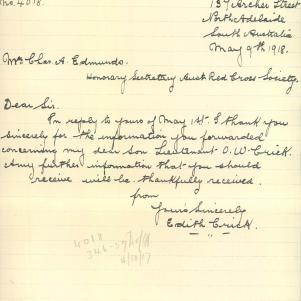 No. 4018.
137 Archer Street
North Adelaide
South Australia
May 9th, 1918.
Mr Chas. A. Edmunds.
Honorary Secretary Aust Red Cross Society.
Dear Sir.
In reply to yours of May 1st. I thank you
sincerely for the information you forwarded
concerning my dear son Lieutenant O. W. Crick.
Any further information that you should
receive will be thankfully received.
from
Yours Sincerely
Edith Crick.
4018
4/10/17